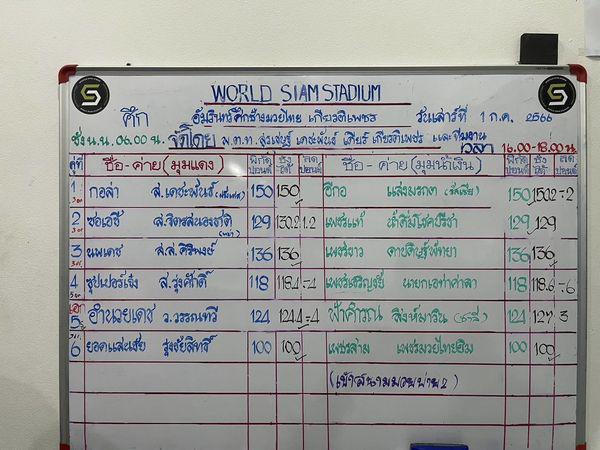 WORLD SIAM STADIUM
ศึก อัมรินทร์ศึกช้างมวยไทย เกียรติเพชร วันเสาร์ที่ 1 ก.ค. 2566
ชั่ง น.น. 06.00 น. จัดโดย ส.ต.ท. สุรเชษฐ์ เดชะพันธ์ เสี่ยร์ เกียรติเพชร และทีมงาน
เวลา 16.00-18.00 น.
คู่ที่ ชื่อ-ค่าย (มุมแดง) พิกัดปอนด์ ชั่งได้ ลดปอนด์ ชื่อ-ค่าย (มุมน้ำเงิน) พิกัดปอนด์ ชั่งได้ ลดปอนด์
1 กอล่า ส.เดชะพันธ์ 150 150 ฮีกอ แสงมรกต (รัสเซีย) 150 150.2 -.2
2 ซอเอซี ส.จิตรสนองชาติ 129 130.2 1.2 เพชรแท้ 129 129
3 นพเดช ส.ส. ศิริพงษ์ 136 136 เพชรขาว ดาบดิษฐ์พัทยา 136 136
4 ซุปเปอร์เจ๋ง ส.รุ่งศักดิ์ 118 118.4 -.4 เพชรเจริญชัย นายกเอท่าศาลา 118 118.6 -.6
เอก
5 อำนวยเดช ว.วรรณทวี 124 124.4 -.4 ฟ้าคำรณ สิงห์มาวิน 124 127 3
6 ยอดแสนชัย รุ่งชัยสิทธิ์ 100 100 เพชรสาม เพชรมวยไทยยิม 100 100
(เข้าสนามมวยบ่าย 2)